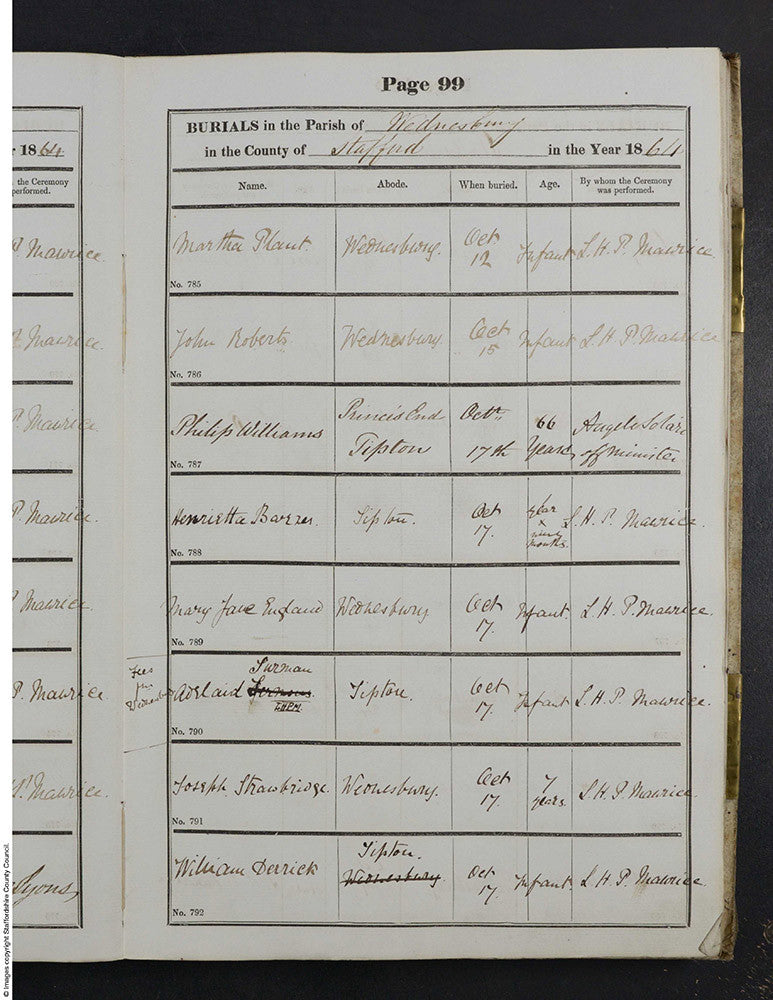 Page 99
BURIALS in the Parish of Wednesbury
in the County of Stafford in the Year 1864
Name. Abode. When buried. Age. By whom the Ceremony was performed.
Martha Plant Wednesbury. Oct 12 Infant L. H. P. Maurice
No. 785
John Roberts Wednesbury Oct 15 Infant L. H. P. Maurice
No. 786
Philip Williams Princis End Tipton Octr 17th 66 Years Angelo Solari off Minister
No. 787
Henrietta Tipton. Oct 17. year x months. L. H. P. Maurice
No. 788
Mary Jane England Wednesbury Oct 17. Infant. L. H. P. Maurice.
No. 789
Fees
Wednesbury
Adelaid Surman Tipton. Oct 17. Infant L. H. P. Maurice.
LHPM
No. 790
Joseph Strawbridge. Wednesbury. Oct 17. 7 years. L. H. P. Maurice
No. 791
William Derrick Tipton. Wednesbury. Oct 17. Infant L. H. P. Maurice
No. 792
1864
the Ceremony
performed.
P. Maurice.
P. Maurice.
P. Maurice.
P. Maurice.
P. Maurice.
P. Maurice.
P. Maurice.
Lyons
© Images copyright Staffordshire County Council.